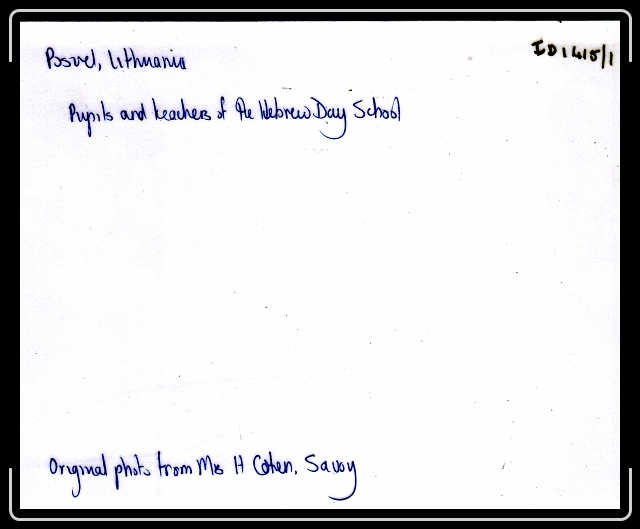 Posvel, Lithuania
ID1415/1
Pupils and teachers of the Hebrew Day School
Original photo from Mrs H Cohen, Savoy